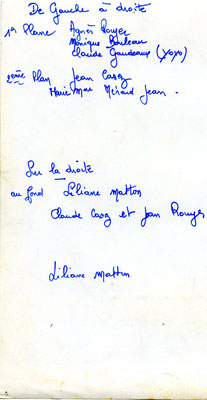 De Gauche à droite
1er Plane Agnès Rouyer
Monique Bouleau
Claude Gaudeaux (YOYO)
2ème Plan Jean Casy
Marie Mme Jean .
Sur la droite
au fond Liliane Matton
Claude Casy et Jean Rouyer
Liliane Matton